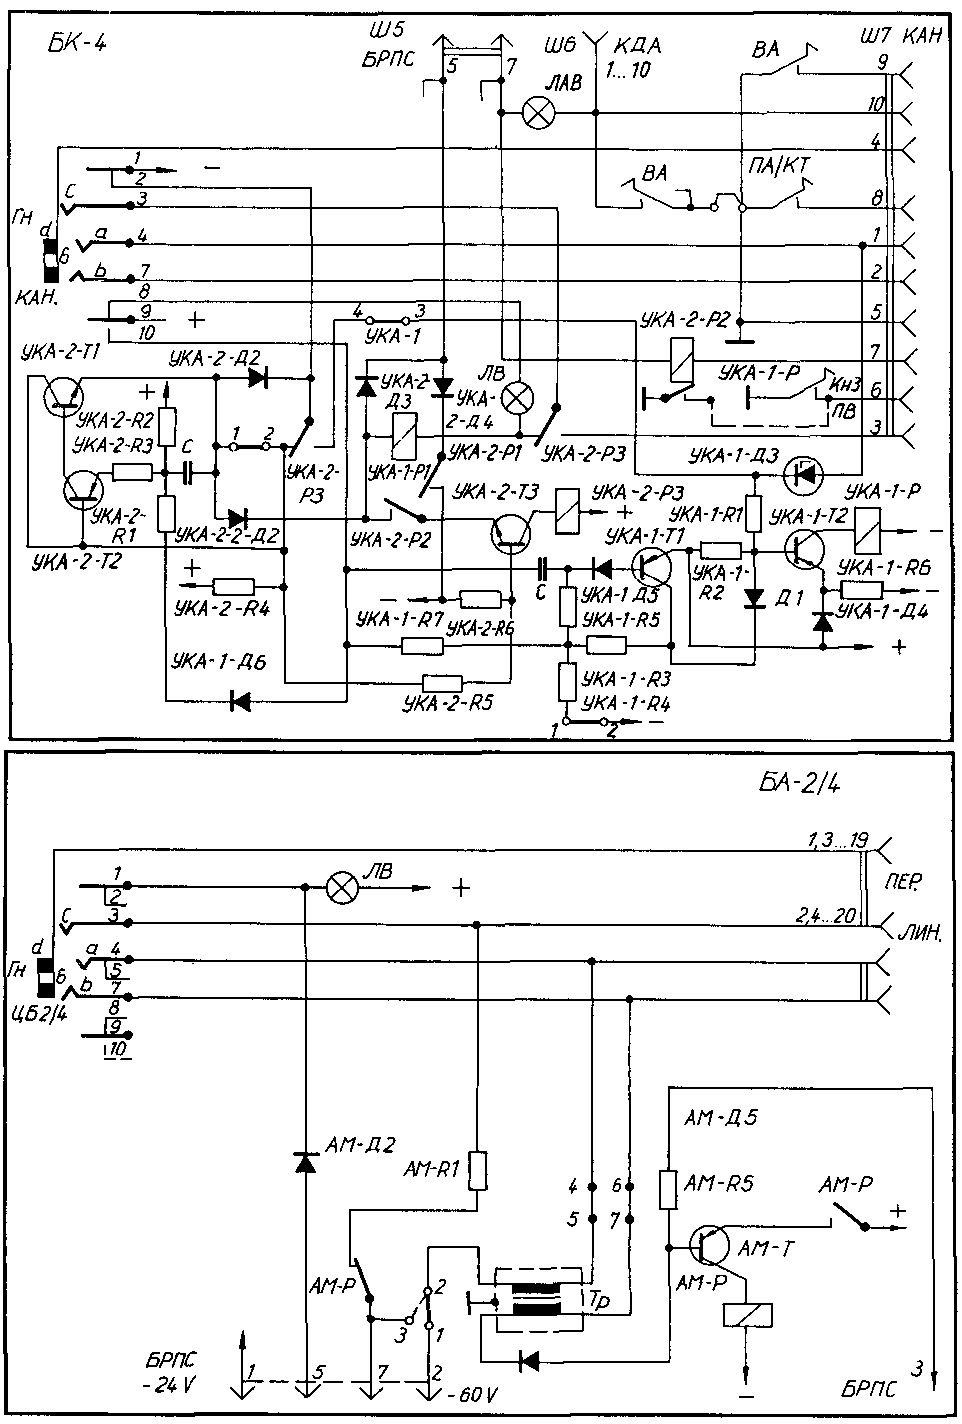 БК-4
Ш5
БРПС
5
7
Ш6
КДА
1...10
ЛАВ
ВА
Ш7 КАН
9
10
4
ВА
ПА/КТ
8
1
2
5
7
6
3
1
2
C
3
Гн
d
a
4
б
b
7
КАН.
8
9
+
10
4
3
УКА-1
УКА-2-Р2
УКА-1-Р
Кн3
ПВ
УКА-2-Т1
УКА-2-Д2
УКА-2-
Д3
УКА-
2-Д4
ЛВ
+
УКА-2-R2
УКА-2-R3
C
1
2
УКА-2-
Р3
УКА-1-Р1
УКА-2-Р1
УКА-2-Р3
УКА-1-Д3
УКА-2-
R1
УКА-2-Т2
УКА-2-2-Д2
УКА-2-Р2
УКА-2-Т3
УКА-2-Р3
+
УКА-1-Т1
УКА-1-R1
УКА-1-Т2
УКА-1-Р
–
+
УКА-2-R4
–
УКА-1-R7
УКА-2-R6
C
УКА-1Д5
УКА-1-R5
УКА-1-
R2
Д1
УКА-1-R6
–
УКА-1-Д4
+
УКА-1-Д6
УКА-2-R5
УКА-1-R3
УКА-1-R4
1
2
–
БА-2/4
1,3...19
ПЕР.
2,4...20
ЛИН.
1
2
C
3
ЛВ
+
d
a
4
Гн
б
5
b
7
ЦБ2/4
8
9
10
АМ-Д2
АМ-R1
4
6
5
7
АМ-Д5
АМ-R5
АМ-Р
+
АМ-Т
АМ-Р
АМ-Р
2
3
1
Тр
–
БРПС
-24V
1
5
7
2
-60V
БРПС
3